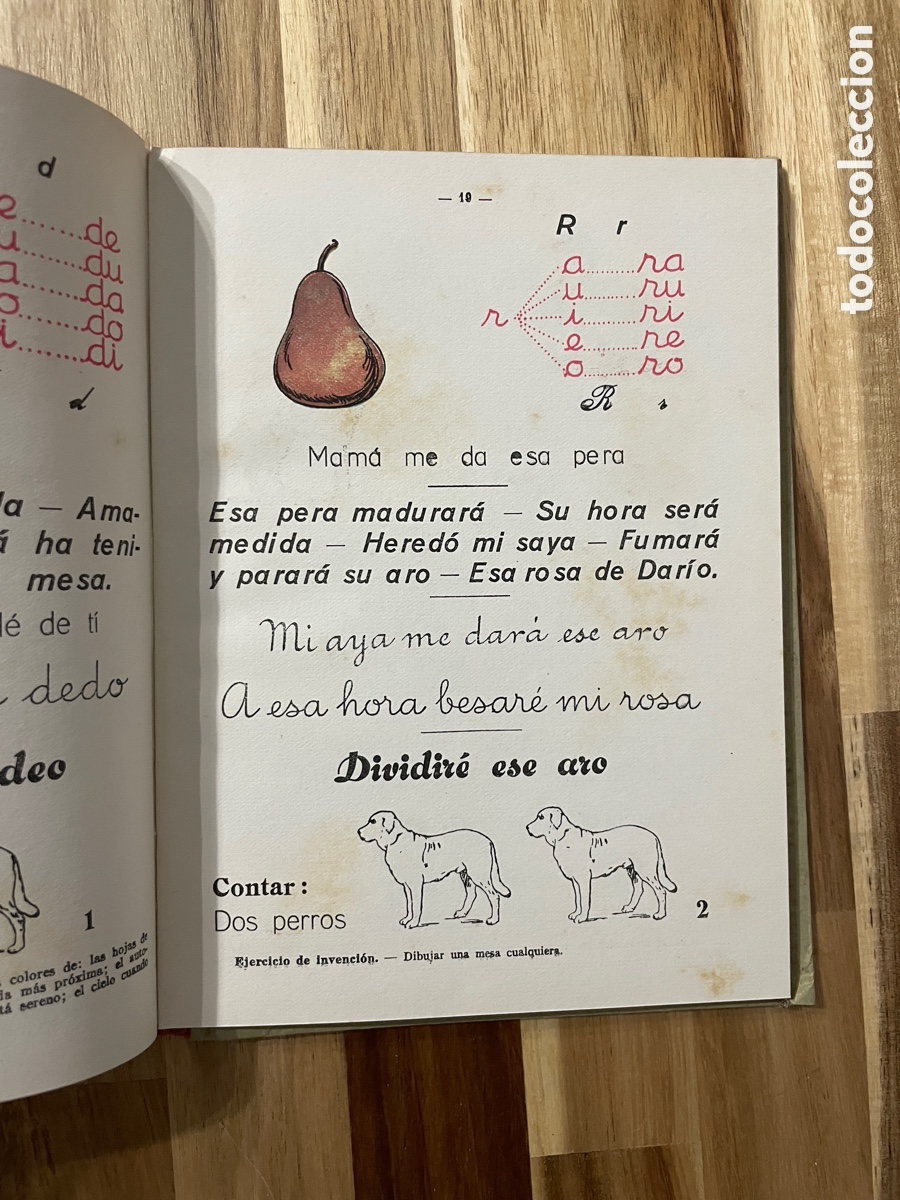 d
de
du
da
do
di
d
Ama-
ha teni-
mesa.
de tí
dedo
1
colores de: las hojas de
más próxima; el auto-
sereno; el cielo cuando
— 19 —
R r
r
a ra
u ru
i ri
e re
o ro
R r
Mamá me da esa pera
Esa pera madurará — Su hora será
medida — Heredó mi saya — Fumará
y parará su aro — Esa rosa de Darío.
Mi aya me dará ese aro
A esa hora besaré mi rosa
Dividiré ese aro
Contar:
Dos perros
2
Ejercicio de invención. — Dibujar una mesa cualquiera.
todocoleccion